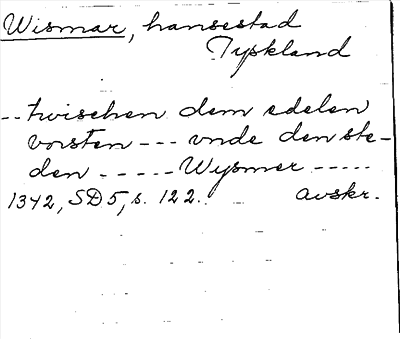 Wismar, hansestad
Tyskland
-- twischen dem edelen
vorsten --- vnde den ste-
den ----- Wysmer -----
1342, SD 5, s. 122. avskr.